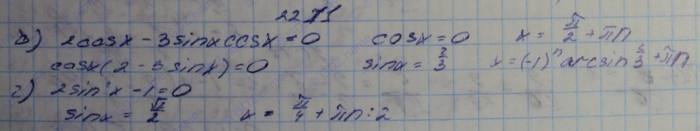 22.11
в) 2cosx - 3sinxcosx = 0 cosx = 0 x = π/2 + πn
cosx(2 - 3sinx) = 0 sinx = 2/3 x = (-1)ⁿ arcsin 2/3 + πn
г) 2sin²x - 1 = 0
sinx = √2/2 x = π/4 + πn:2